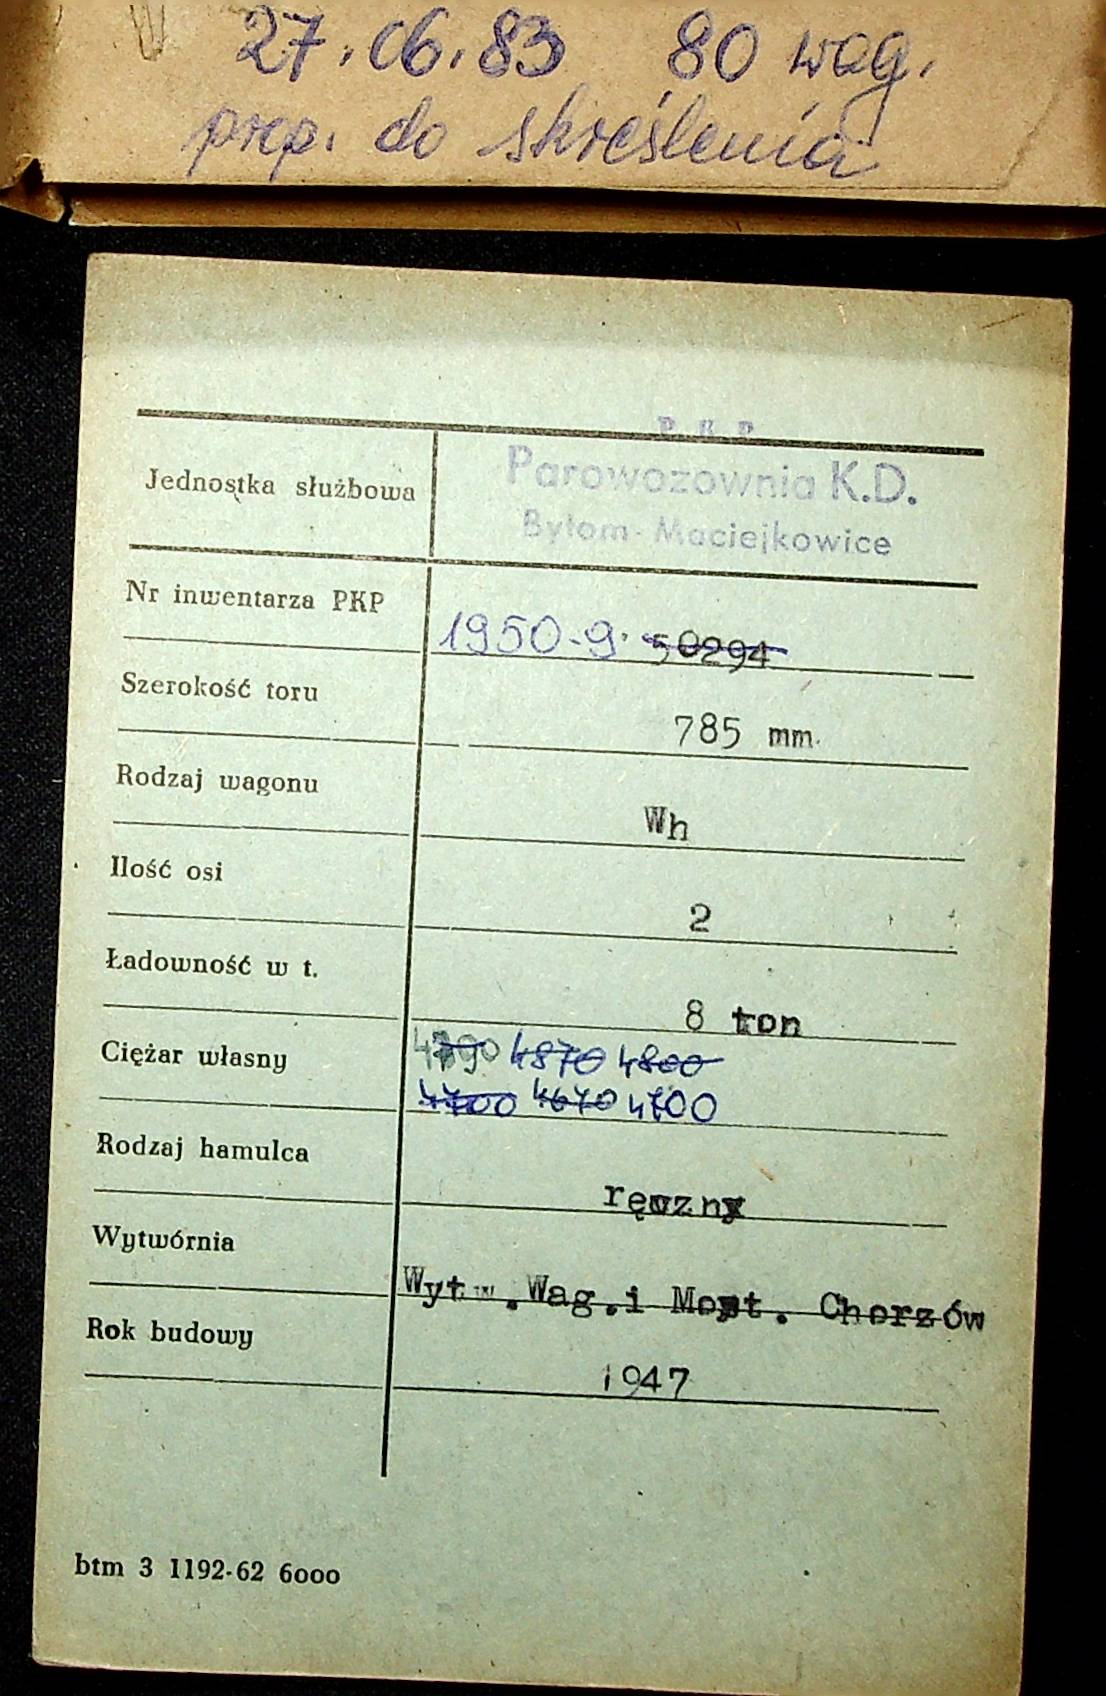 27.06.83 80 wag.
prop. do skreślenia
P K P
Jednostka służbowa
Parowozownia K.D.
Bytom-Maciejkowice
Nr inwentarza PKP
1950-9. 50294
Szerokość toru
785 mm.
Rodzaj wagonu
Wh
Ilość osi
2
Ładowność w t.
8 ton
Ciężar własny
4870 4800
4700 4670 4700
Rodzaj hamulca
ręczny
Wytwórnia
Wytw.Wag.i Most. Chorzów
Rok budowy
1947
btm 3 1192-62 6000